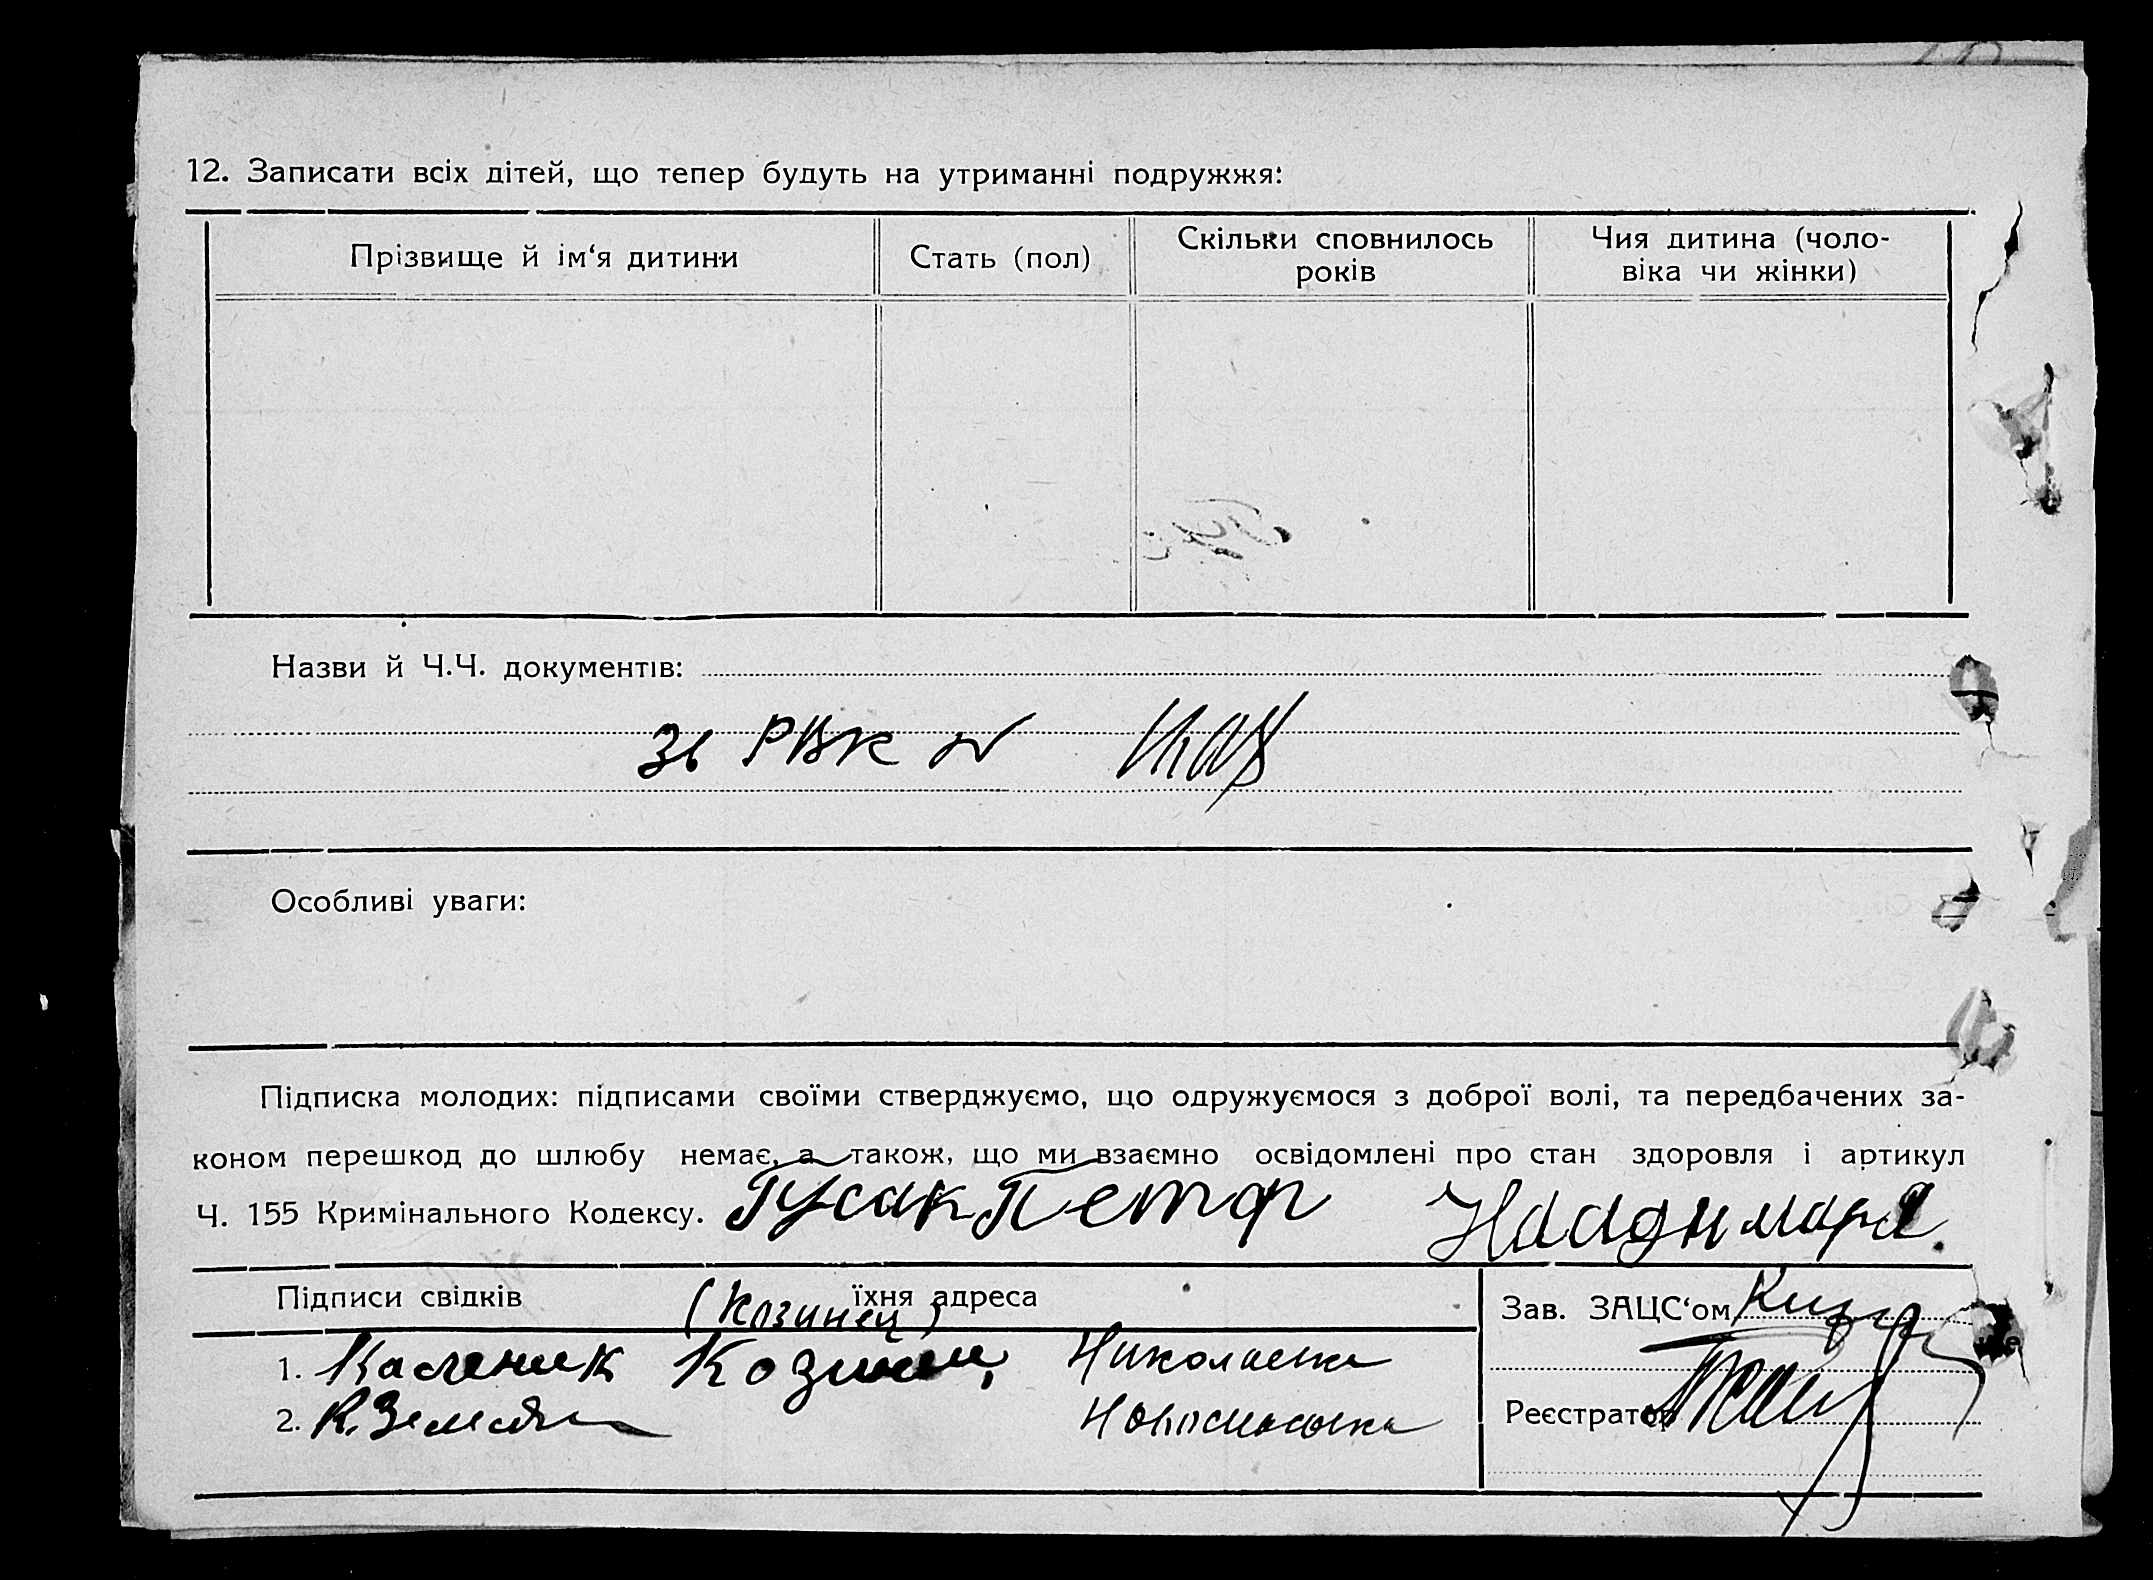 12. Записати всіх дітей, що тепер будуть на утриманні подружжя:
Прізвище й ім‘я дитини
Стать (пол)
Скільки сповнилось
років
Чия дитина (чоло-
віка чи жінки)
Назви й Ч.Ч. документів:
РВК №
Особливі уваги:
Підписка молодих: підписами своїми стверджуємо, що одружуємося з доброї волі, та передбачених за-
коном перешкод до шлюбу немає, а також, що ми взаємно освідомлені про стан здоровля і артикул
Ч. 155 Кримінального Кодексу. Гусак Петр
Підписи свідків (Козинец) їхня адреса
1. Каленик Козинец Николаевка
2. К. Новомосковка
Зав. ЗАЦС‘ом
Реєстратор